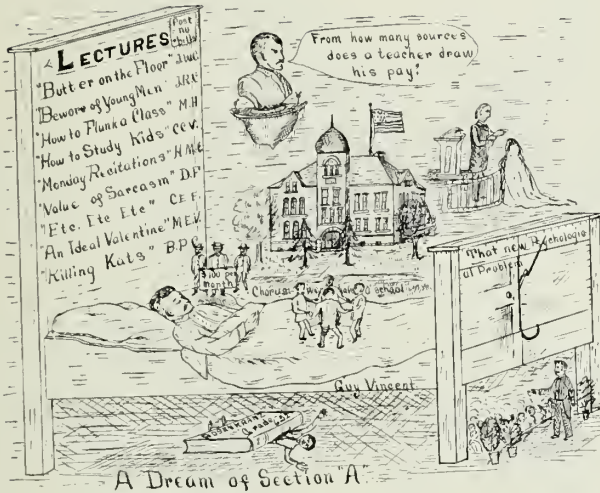 LECTURES
Post
no
bills
"Butter on the Floor" J.W.C.
"Beware of Young Men" J.R.K.
"How to Flunk a Class" M.H.
"How to Study Kids" C.C.V.
"Monday Recitations" H.M.
"Value of Sarcasm" D.F.
"Etc. Etc Etc" C.E.F.
"An Ideal Valentine" M.E.V.
"Killing Kats" B.P.C.
From how many sources
does a teacher draw
his pay?
$100 per
month
Chorus:
school
That new Psychologic
al Problem
Guy Vincent
A Dream of Section "A"